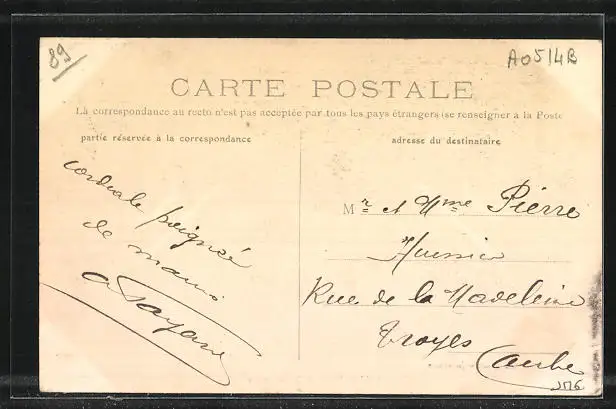 89
A0514B
CARTE POSTALE
Là correspondance au recto n'est pas acceptée par tous les pays étrangers (se renseigner à la Poste
partie réservée à la correspondance
adresse du destinataire
cordiale poignée
de mains
Mr et Mme Pierre
Huissier
Rue de la Madeleine
Troyes
(Aube